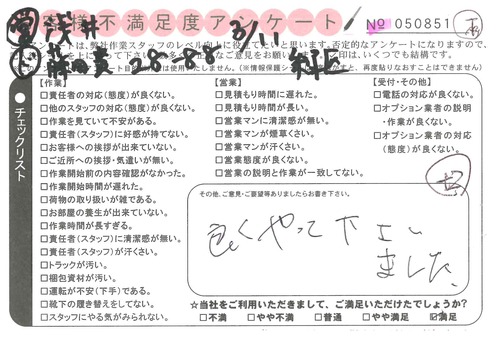 様不満足度アンケート
No 050851
浅井 3/11
ンケートは、弊社作業スタッフのレベル向上に役立てたいと思います。否定的なアンケートになりますので、
【作業】
□責任者の対応(態度)が良くない。
□他のスタッフの対応(態度)が良くない。
□作業を見ていて不安がある。
□責任者(スタッフ)に好感が持てない。
□お客様への挨拶が出来ていない。
□ご近所への挨拶・気遣いが無い。
□作業開始前の内容確認がなかった。
□作業開始時間が遅れた。
□荷物の取り扱いが雑である。
□お部屋の養生が出来ていない。
□作業時間が長すぎる。
□責任者(スタッフ)に清潔感が無い。
□責任者(スタッフ)が汗くさい。
□トラックが汚い。
□梱包資材が汚い。
□運転が不安(下手)である。
□靴下の履き替えをしてない。
□スタッフにやる気がみられない。
【営業】
□見積もり時間に遅れた。
□見積もり時間が長い。
□営業マンに清潔感が無い。
□営業マンが煙草くさい。
□営業マンが汗くさい。
□営業態度が良くない。
□営業の説明と作業が一致してない。
【受付・その他】
□電話の対応が良くない。
□オプション業者の説明
・作業が良くない。
□オプション業者の対応
(態度)が良くない。
チェックリスト
その他、ご意見・ご要望等ありましたらお書き下さい。
良くやって下さい
ました。
☆当社をご利用いただきまして、ご満足いただけたでしょうか?
□不満 □やや不満 □普通 □やや満足 ☑満足